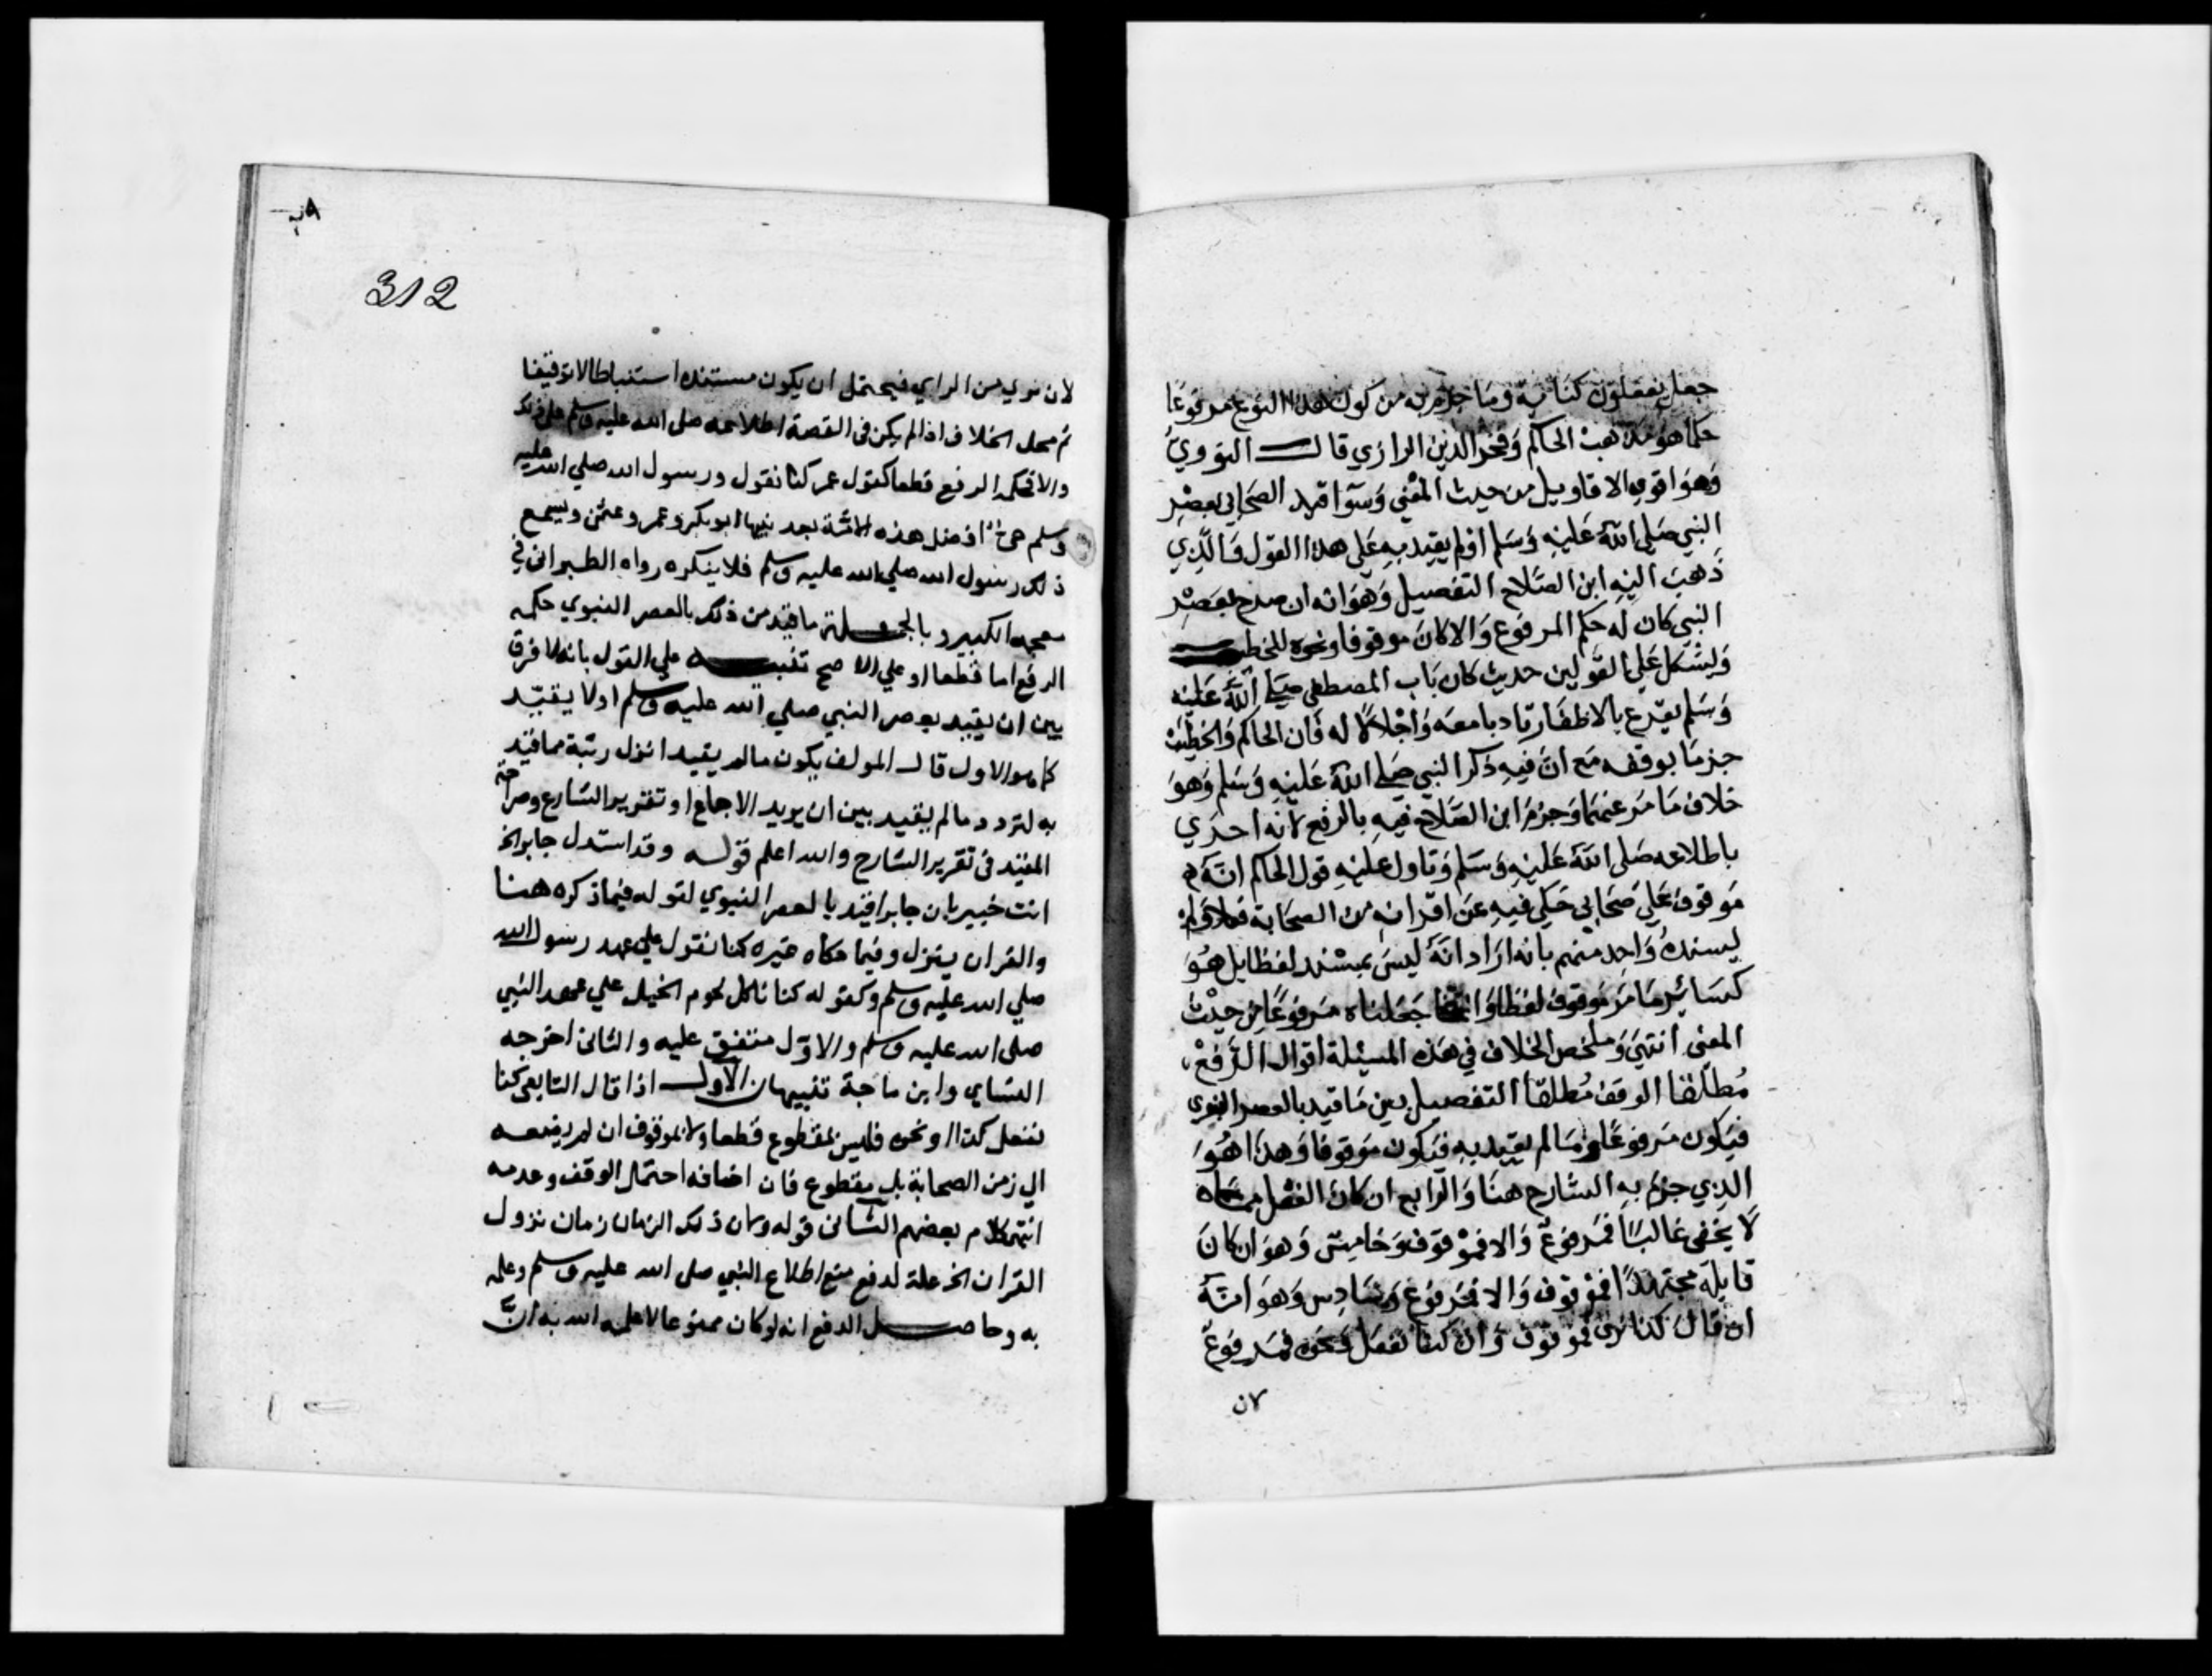 جعل يفعلون كناية وما جزم به من كون هذا النوع مرفوعا
حكما هو مذهب الحاكم وفخر الدين الرازي قال النووي
وهو اقوي الاقاويل من حيث المعني وسوا قيد الصحابي بعصر
النبي صلى الله عليه وسلم اولم يقيد به علي هذا القول فالذي
ذهب اليه ابن الصلاح التفصيل وهو انه ان صرح بعصر
النبي كان له حكم المرفوع والا كان موقوفا ونحوه للخطيب
ويشكل علي القولين حديث كان باب المصطفى صلي الله عليه
وسلم يقرع بالاظفار تادبا معه واجلالا له فان الحاكم والخطيب
جزما بوقفه مع ان فيه ذكر النبي صلي الله عليه وسلم وهو
خلاف ما مر عنهما وجزم ابن الصلاح فيه بالرفع لانه احري
باطلاعه صلى الله عليه وسلم وتاول عليه قول الحاكم انه
موقوف علي صحابي حكي فيه عن اقرانه من الصحابة فعلا ولم
يسنده واحد منهم بانه اراد انه ليس بمسند لفظا بل هو
كسائر ما مر موقوف لفظا وانما جعلناه مرفوعا من حيث
المعنى انتهي وملخص الخلاف في هذه المسئلة اقوال الرفع
مطلقا الوقف مطلقا التفصيل بين ما قيد بالعصر النبوي
فيكون مرفوعا وما لم يقيد به فيكون موقوفا وهذا هو
الذي جزم به الشارح هنا والرابع ان كان الفعل مما
لا يخفى غالبا فمرفوع والا فموقوف وخامس وهو ان كان
قايله مجتهدا فموقوف والا فمرفوع وسادس وهو انه
ان قال كنا نرى فموقوف وان كنا نفعل ونحوه فمرفوع
لان
312
لان نري من الراي فيحتمل ان يكون مستنده استنباطا لا توقيفا
ثم محل الخلاف اذا لم يكن في القصة اطلاعه صلى الله عليه وسلم على ذلك
والا فحكمه الرفع قطعا كقول عمر كنا نقول ورسول الله صلي الله عليه
وسلم حي افضل هذه الامة بعد نبيها ابو بكر وعمر وعثمن ويسمع
ذلك رسول الله صلي الله عليه وسلم فلا ينكره رواه الطبراني في
معجمه الكبير وبالجملة ما قيد من ذلك بالعصر النبوي حكمه
الرفع اما قطعا او علي الاصح تنبيه علي القول بانه لا فرق
بين ان يقيد بعصر النبي صلي الله عليه وسلم اولا يقيد
كما هو الاول قال المولف يكون ما لم يقيد انزل رتبة مما قيد
به لتردد ما لم يقيد بين ان يريد الاجماع او تقرير الشارع وصراحة
المقيد في تقرير الشارح والله اعلم قوله وقد استدل جابر الخ
انت خبير بان جابرا قيد بالعصر النبوي لقوله فيما ذكره هنا
والقران ينزل وفيما حكاه غيره كنا نقول علي عهد رسول الله
صلي الله عليه وسلم وكقوله كنا ناكل لحوم الخيل علي عهد النبي
صلى الله عليه وسلم والاول متفق عليه والثاني اخرجه
النساي وابن ماجة تنبيهان الاول اذا قال التابعي كنا
نفعل كذا او نحوه فليس بمقطوع قطعا ولا بموقوف ان لم يضفه
الي زمن الصحابة بل مقطوع فان اضافه احتمال الوقف وعدمه
انتهي كلام بعضهم الثاني قوله وكان ذلك الزمان زمان نزول
القران الخ علة لدفع منع اطلاع النبي صلى الله عليه وسلم وعلمه
به وحاصل الدفع انه لو كان ممنوعا لاعلمه الله به لان